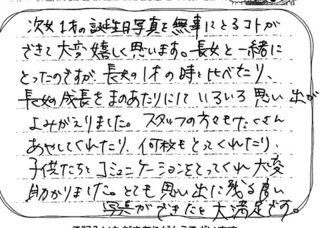 次女1才の誕生日写真を無事にとるコトが
できて大変嬉しく思います。長女と一緒に
とったのですが、長女の1才の時と比べたり、
長女の成長をまのあたりにしていろいろ思い出が
よみがえりました。スタッフの方々もたくさん
あやしてくれたり、何枚もとってくれたり、
子供たちとコミュニケーションをとってくれ大変
助かりました。とても思い出に残る良い
写真ができたと大満足です。